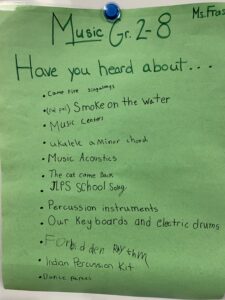 Ms. Fras
Music Gr. 2-8
Have you heard about...
• Camp Fire singalongs
• Smoke on the Water
• Music Centers
• ukulele a minor chord
• Music Acoustics
• The cat came back
• JLPS School Song
• Percussion instruments
• Our Keyboards and electric drums
• Forbidden Rhythm
• Indian Percussion Kit
• Dance